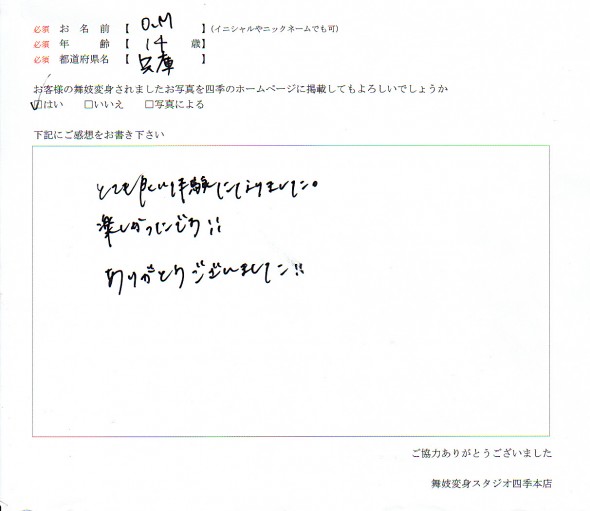 必須 お名前【 O.M 】(イニシャルやニックネームでも可)
必須 年齢【 14 歳】
必須 都道府県名【 兵庫 】
お客様の舞妓変身されましたお写真を四季のホームページに掲載してもよろしいでしょうか
☑はい □いいえ □写真による
下記にご感想をお書き下さい
とても良い体験になりました。
楽しかったです!!
ありがとうございました!!
ご協力ありがとうございました
舞妓変身スタジオ四季本店